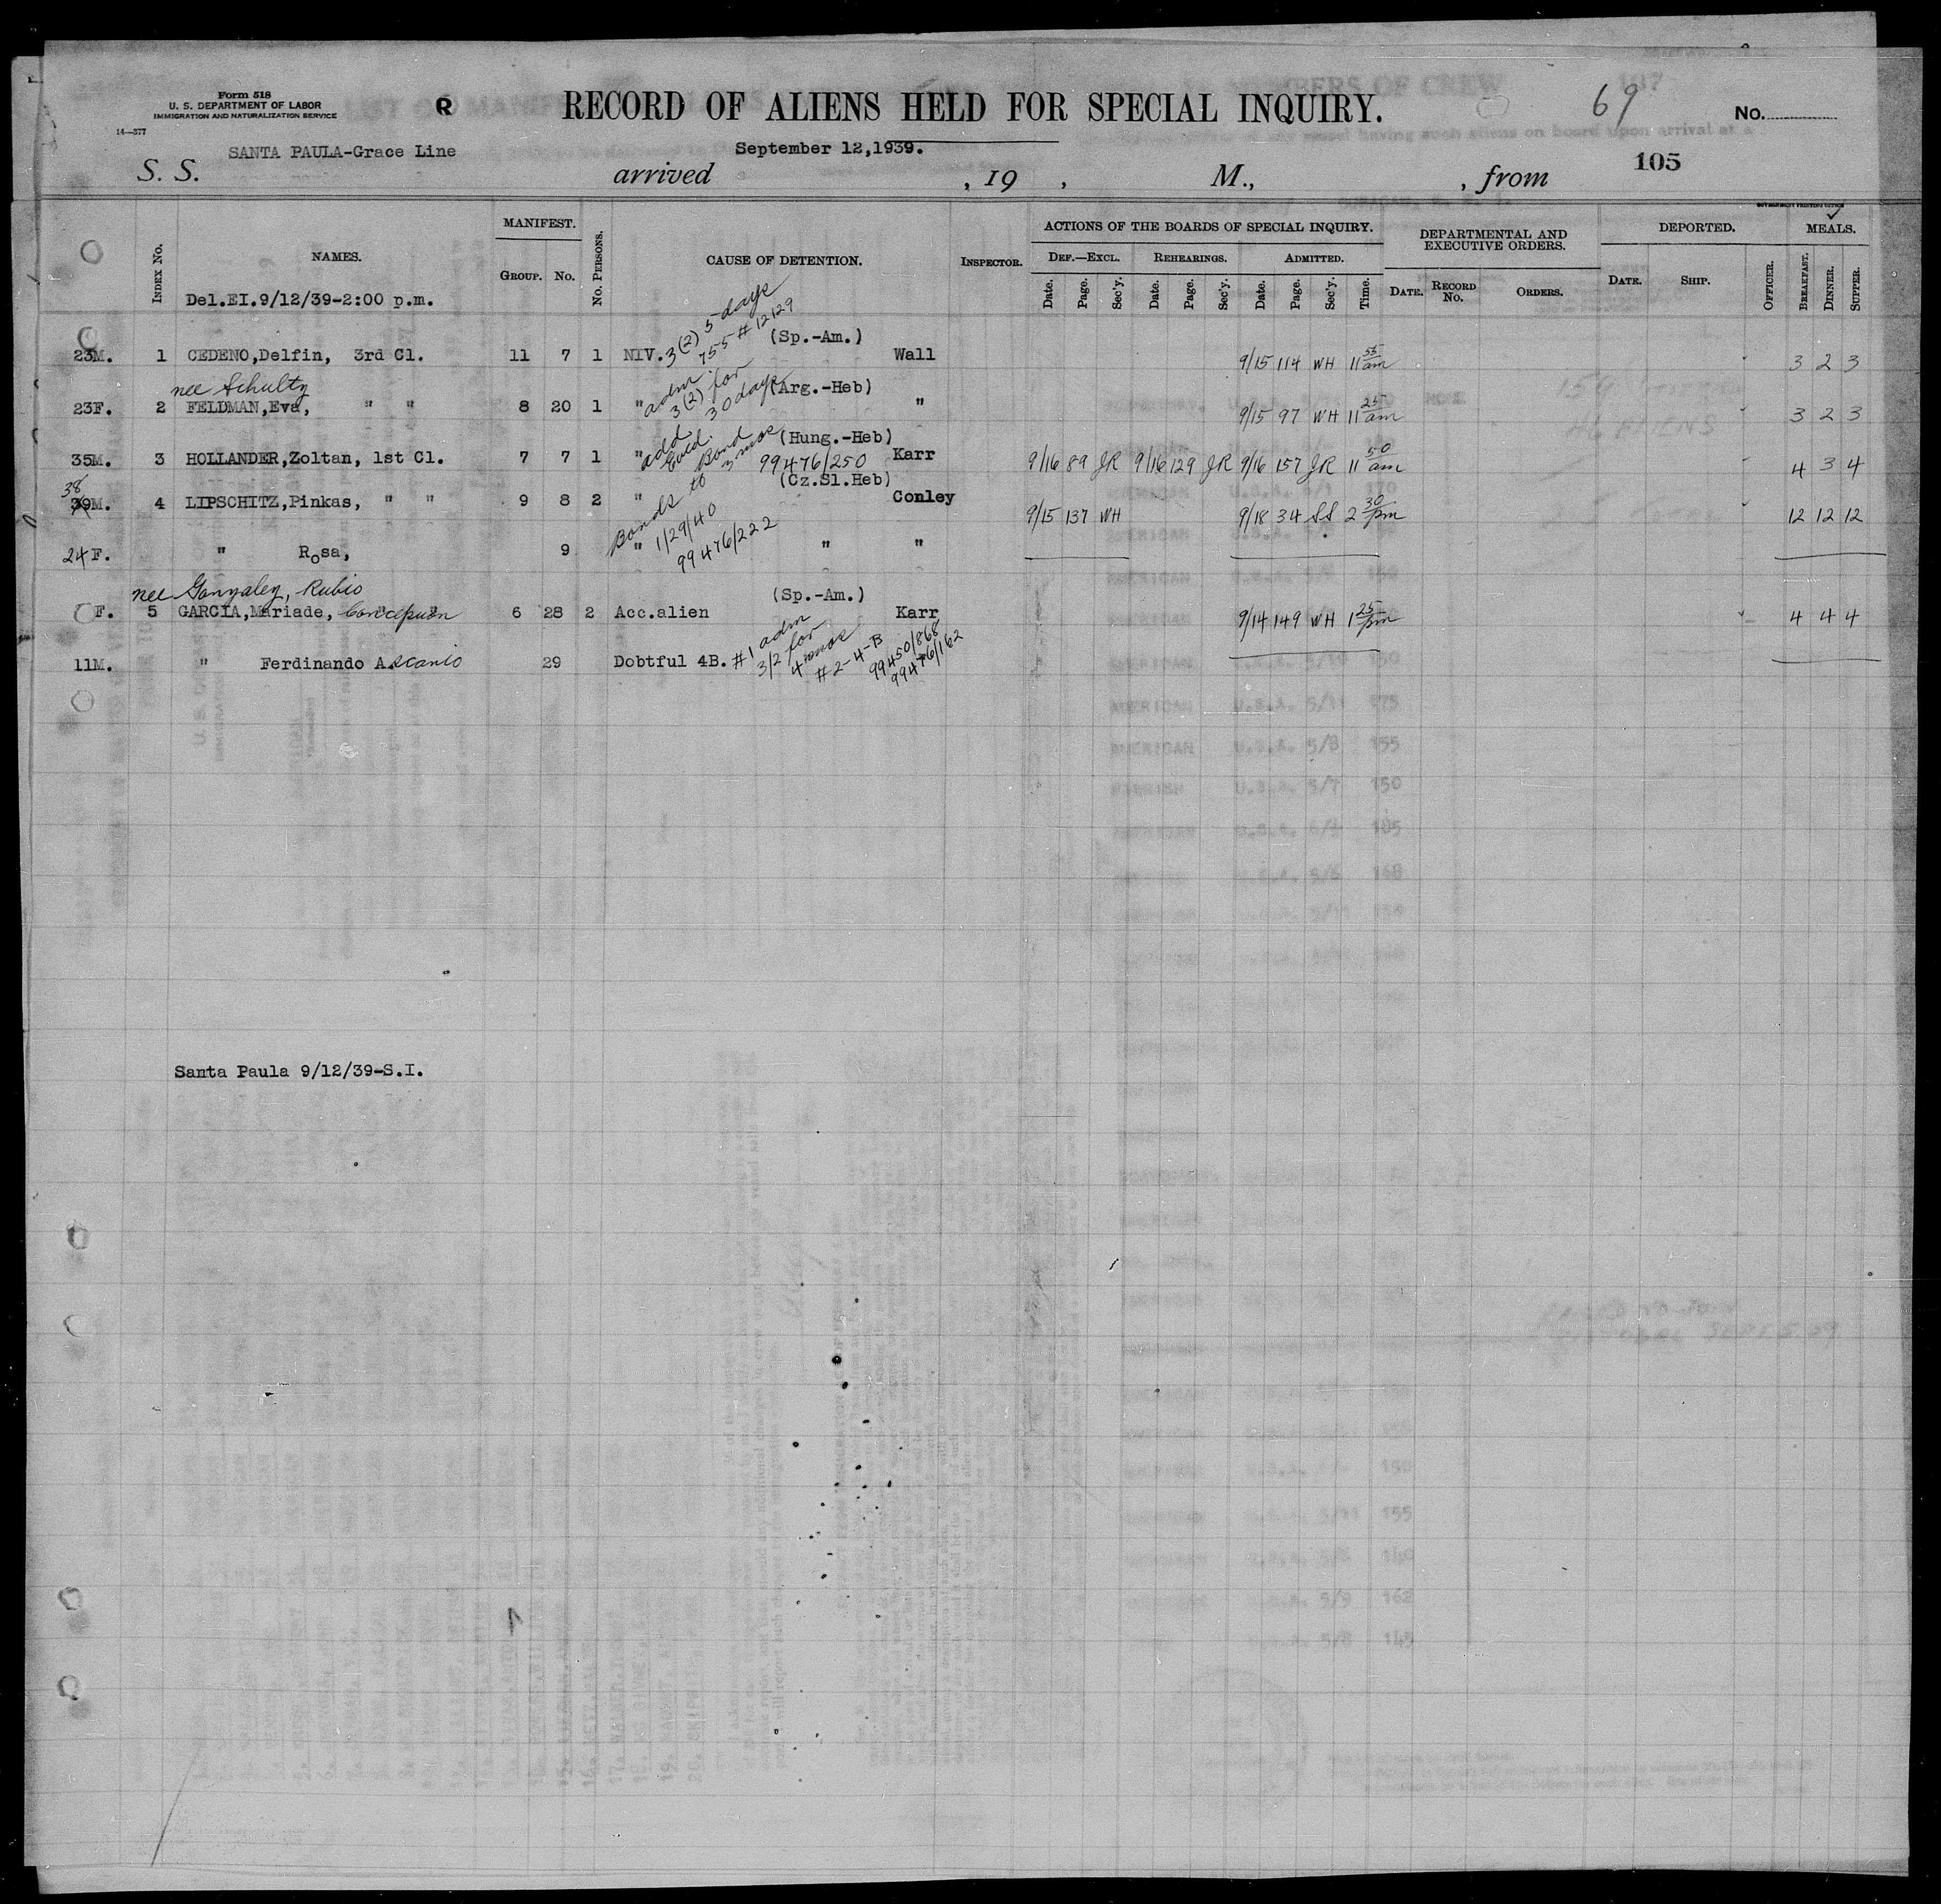 Form 518
U. S. DEPARTMENT OF LABOR
IMMIGRATION AND NATURALIZATION SERVICE
14—377
R
RECORD OF ALIENS HELD FOR SPECIAL INQUIRY.
69
No.
105
SANTA PAULA-Grace Line
September 12,1939.
S. S. arrived , 19 , M., , from
GOVERNMENT PRINTING OFFICE
INDEX NO. NAMES. MANIFEST. GROUP. NO. NO. PERSONS. CAUSE OF DETENTION. INSPECTOR. ACTIONS OF THE BOARDS OF SPECIAL INQUIRY. DEPARTMENTAL AND EXECUTIVE ORDERS. DEPORTED. MEALS.
DEF.—EXCL. REHEARINGS. ADMITTED.
Date. Page. Sec'y. Date. Page. Sec'y. Date. Page. Sec'y. Time. DATE. RECORD NO. ORDERS. DATE. SHIP. OFFICER. BREAKFAST. DINNER. SUPPER.
Del.EI.9/12/39-2:00 p.m.
3(2) 5 days
755 # 12129
(Sp.-Am.)
23M. 1 CEDENO,Delfin, 3rd Cl. 11 7 1 NIV. Wall 9/15 114 WH 11 55 am 3 2 3
nee Schultz
adm. 3(2) for 30 days
(Arg.-Heb)
23F. 2 FELDMAN,Eva, " " 8 20 1 " " 9/15 97 WH 11 25 am 3 2 3
Bond 3 mos
99476/250
(Hung.-Heb)
35M. 3 HOLLANDER,Zoltan, 1st Cl. 7 7 1 " Karr 9/16 89 JR 9/16 129 JR 9/16 157 JR 11 50 am 4 3 4
(Cz.Sl.Heb)
38
39M. 4 LIPSCHITZ,Pinkas, " " 9 8 2 " Conley 9/15 137 WH 9/18 34 SS 2 30 pm 12 12 12
Bonds to 1/29/40
99476/222
24F. " Rosa, 9 " " "
nee Gonzalez, Rubio
(Sp.-Am.)
F. 5 GARCIA,Mariade, Concepcion " " 6 28 2 Acc.alien Karr 9/14 149 WH 1 25 pm 4 4 4
11M. " Ferdinando Ascanio 29 Dobtful 4B.
#1 adm
3/2 for
4 mos
#2-4-B
99450/868
99476/162
Santa Paula 9/12/39-S.I.